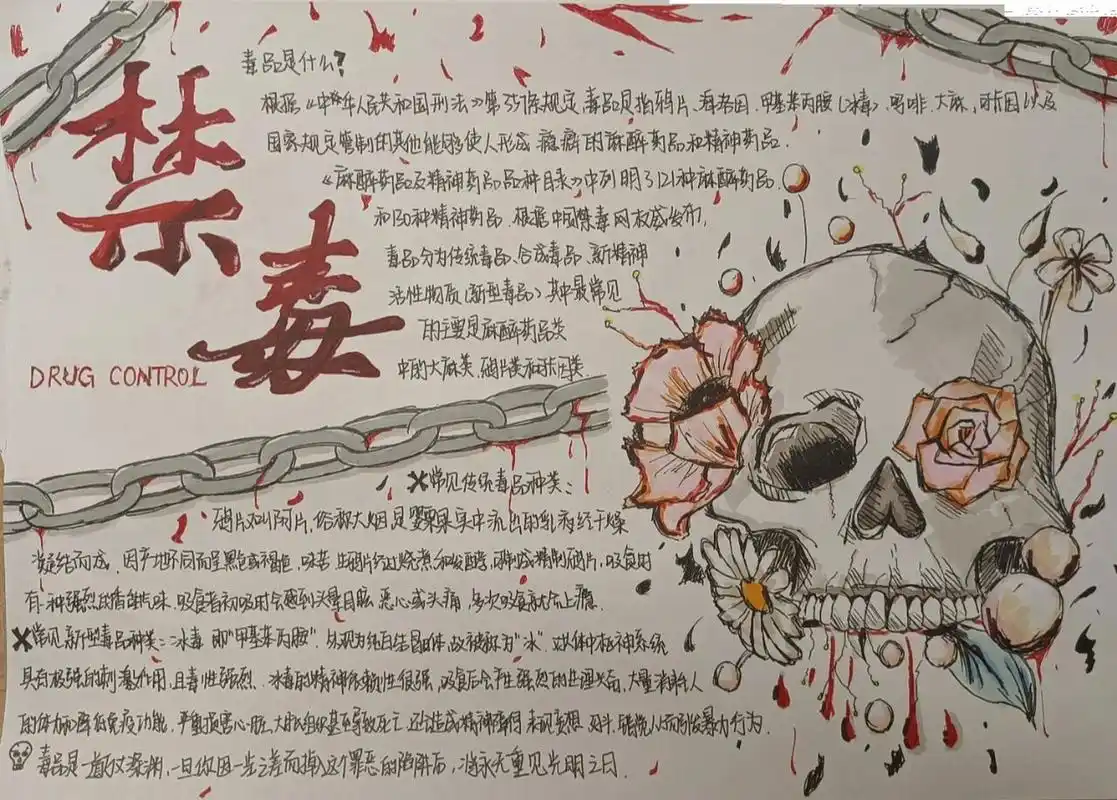 禁毒
DRUG CONTROL
毒品是什么?
根据《中华人民共和国刑法》第357条规定,毒品是指鸦片、海洛因、甲基苯丙胺(冰毒)、吗啡、大麻、可卡因以及
国家规定管制的其他能够使人形成瘾癖的麻醉药品和精神药品.
《麻醉药品及精神药品品种目录》中列明了121种麻醉药品
和130种精神药品.根据中国禁毒网权威发布,
毒品分为传统毒品、合成毒品、新精神
活性物质(新型毒品).其中最常见
的主要是麻醉药品类
中的大麻类、鸦片类和可卡因类.
常见传统毒品种类:
鸦片又叫阿片,俗称大烟,是罂粟果实中流出的乳液经干燥
凝结而成.因产地不同而呈黑色或褐色,味苦.生鸦片经过烧煮和发酵,可制成精制鸦片,吸食时
有一种强烈的香甜气味.吸食者初吸时会感到头晕目眩、恶心或头痛,多次吸食就会上瘾.
常见新型毒品种类:冰毒 即"甲基苯丙胺".外观为纯白结晶体,故被称为"冰".对人体中枢神经系统
具有极强的刺激作用,且毒性强烈.冰毒的精神依赖性很强,吸食后会产生强烈的生理兴奋,大量消耗人
的体力和降低免疫功能,严重损害心脏、大脑组织甚至导致死亡.还会造成精神障碍,表现妄想、好斗、错觉,从而引发暴力行为.
毒品是一道万丈深渊,一旦你因一步之差而掉入这个罪恶的陷阱后,将永无重见光明之日.